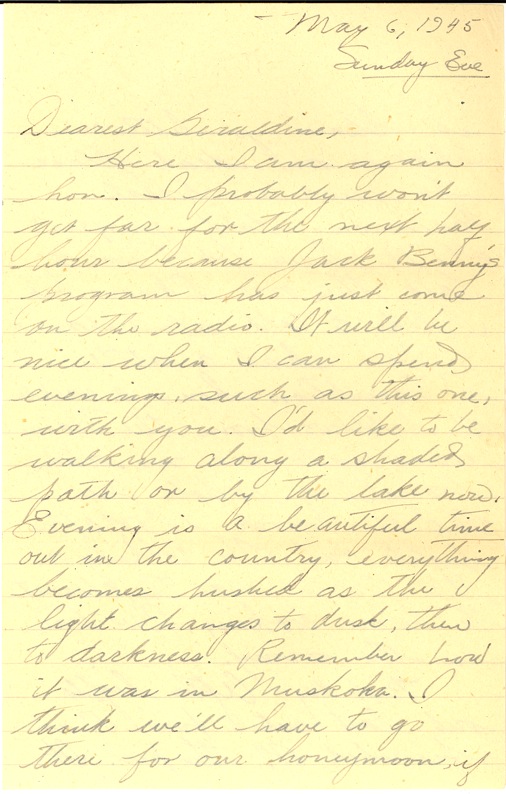 May 6, 1945
Sunday Eve
Dearest Geraldine,
Here I am again
hon. I probably won't
get far for the next half
hour because Jack Benny's
program has just come
on the radio. It will be
nice when I can spend
evenings, such as this one,
with you. I'd like to be
walking along a shaded
path or by the lake now.
Evening is a beautiful time
out in the country, everything
becomes hushed as the
light changes to dusk, then
to darkness. Remember how
it was in Muskoka. I
think we'll have to go
there for our honeymoon, if